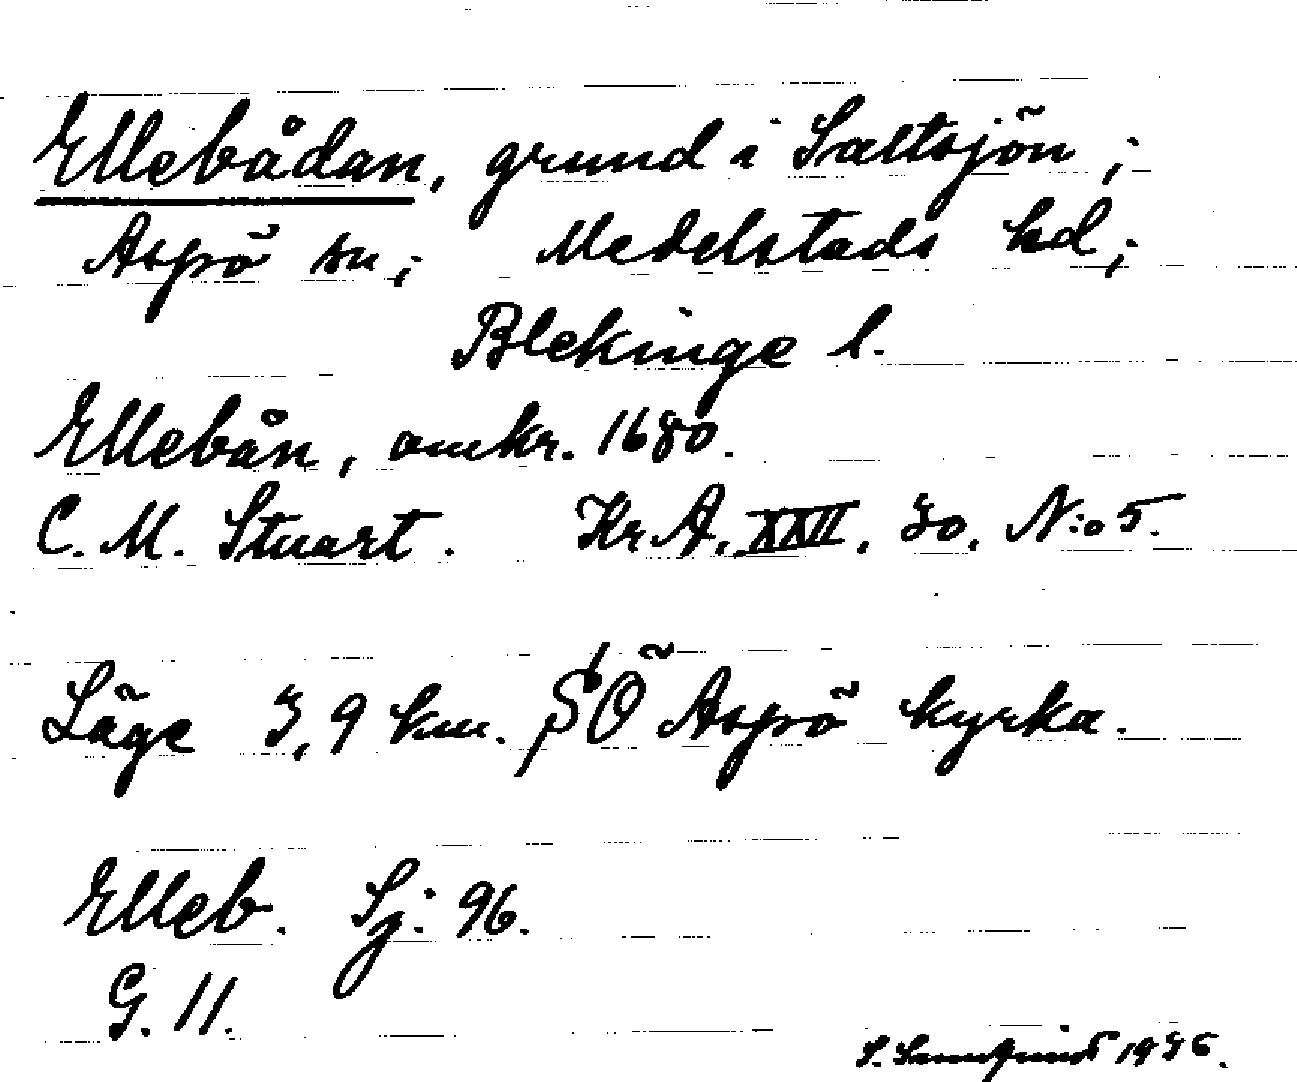 Ellebådan, grund i Saltsjön;
Aspö sn; Medelstads hd;
Blekinge l.
Ellebån, omkr. 1680.
C. M. Stuart. Kr A, XXII, 30, N:o 5.
Läge 3,9 km. SÖ Aspö kyrka.
Elleb. Sj: 96.
G. 11.
S.